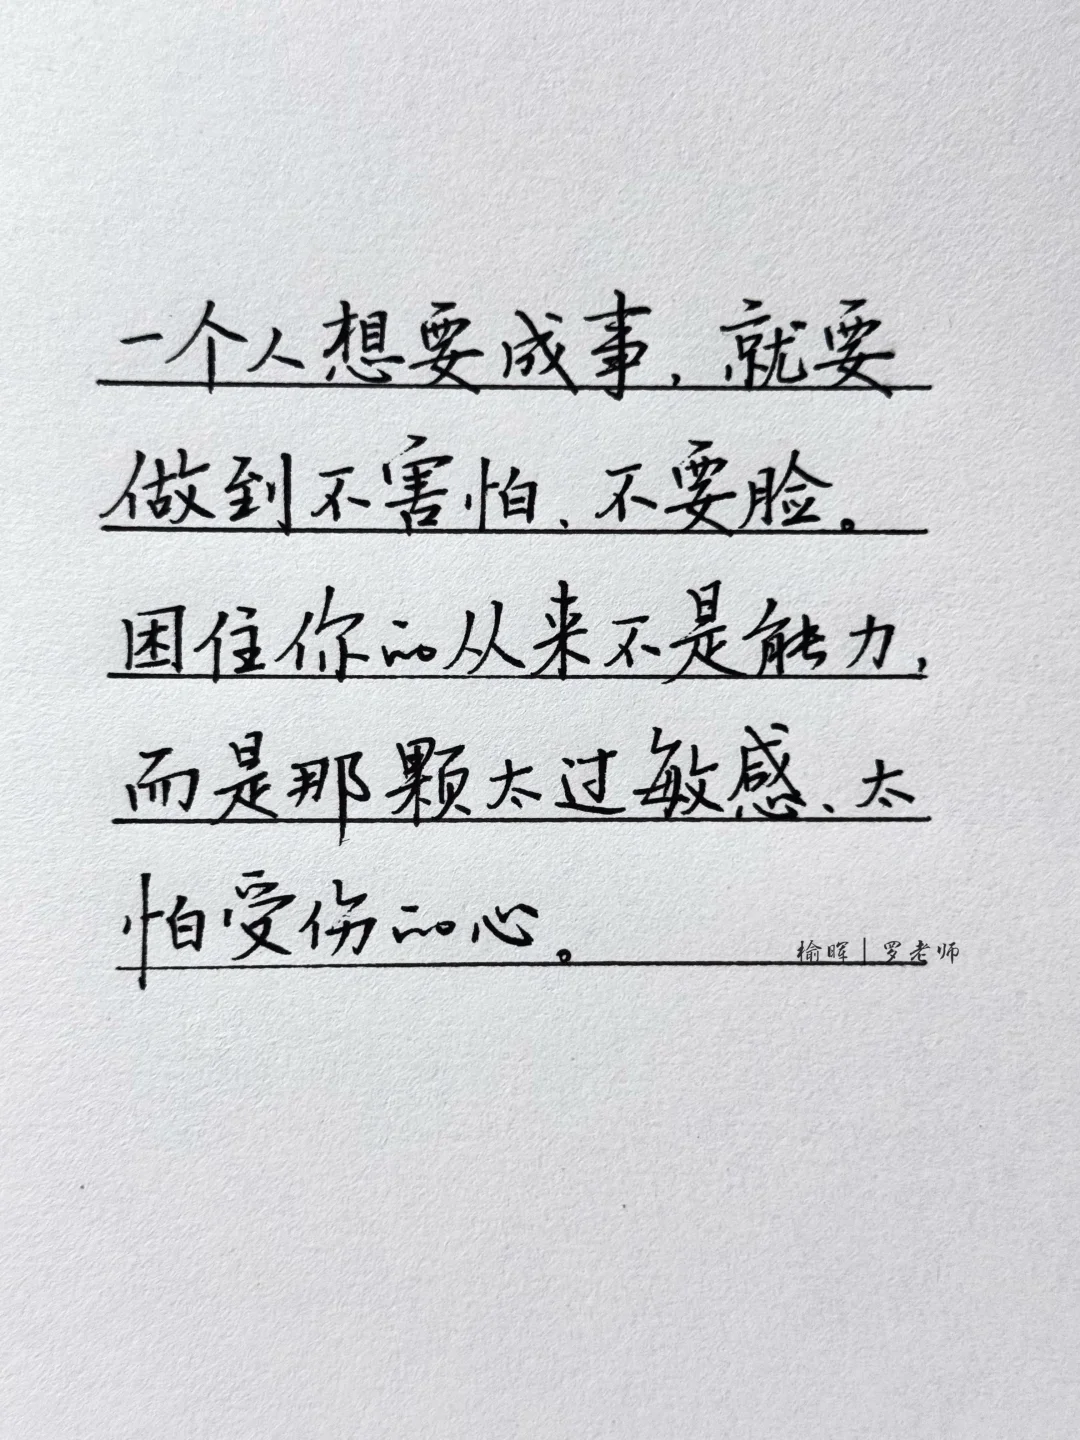 一个人想要成事，就要
做到不害怕、不要脸。
困住你的从来不是能力，
而是那颗太过敏感、太
怕受伤的心。
榆晖|罗老师